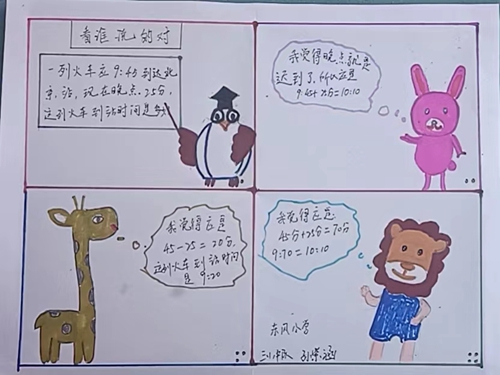 看谁说的对
一列火车应9:45到达北
京站,现在晚点25分,
这列火车到站时间是多
我觉得晚点就是
迟到了,所以应是
9:45+25=10:10
我觉得应是
45-25=20分,
这列火车到站时间
是9:20
我觉得应是:
45分+25分=70分
9:70=10:10
东风小学